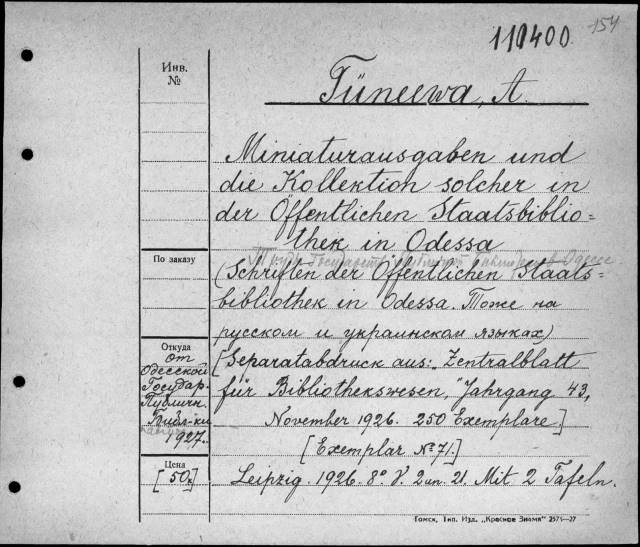 110400.
154
Инв.
№
Tüneewa, A.
Miniaturausgaben und
die Kollektion solcher in
der Öffentlichen Staatsbiblio=
thek in Odessa
По заказу
(Schriften der Öffentlichen Staats=
bibliothek in Odessa. Тоже на
русском и украинском языках)
Откуда
от
Одесской
Государ.
Публичн.
Библ-ки
1927.
[Separatabdruck aus: „Zentralblatt
für Bibliothekswesen," Jahrgang 43,
November 1926. 250 Exemplare]
[Exemplar № 71.]
Цена
[50к]
Leipzig. 1926. 8°. V. 2 un. 21. Mit 2 Tafeln.
Томск, Тип. Изд. „Красное Знамя" 2571—27